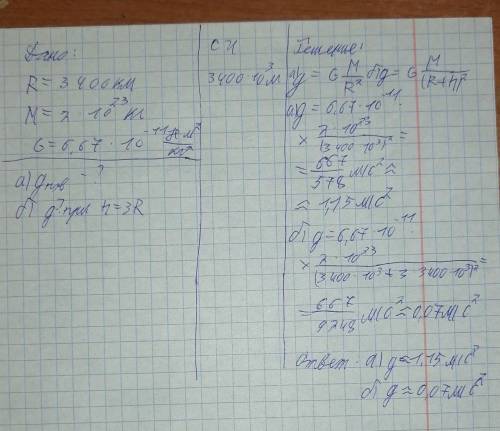 Дано:
R = 3400 км
M = 2 · 10²³ кг
G = 6,67 · 10⁻¹¹ Н·м²/кг²
а) gпов - ?
б) g? при h = 3R
СИ
3400·10³м
Решение:
а) g = G M/R² б) g = G M/(R+h)²
а) g = 6,67 · 10⁻¹¹ ·
× 2 · 10²³/(3400 · 10³)² =
= 667/578 м/с² ≈
≈ 1,15 м/с²
б) g = 6,67 · 10⁻¹¹ ·
× 2 · 10²³/(3400 · 10³ + 3 · 3400 · 10³)² =
= 667/9248 м/с² ≈ 0,07 м/с²
Ответ: а) g ≈ 1,15 м/с²
б) g ≈ 0,07 м/с²